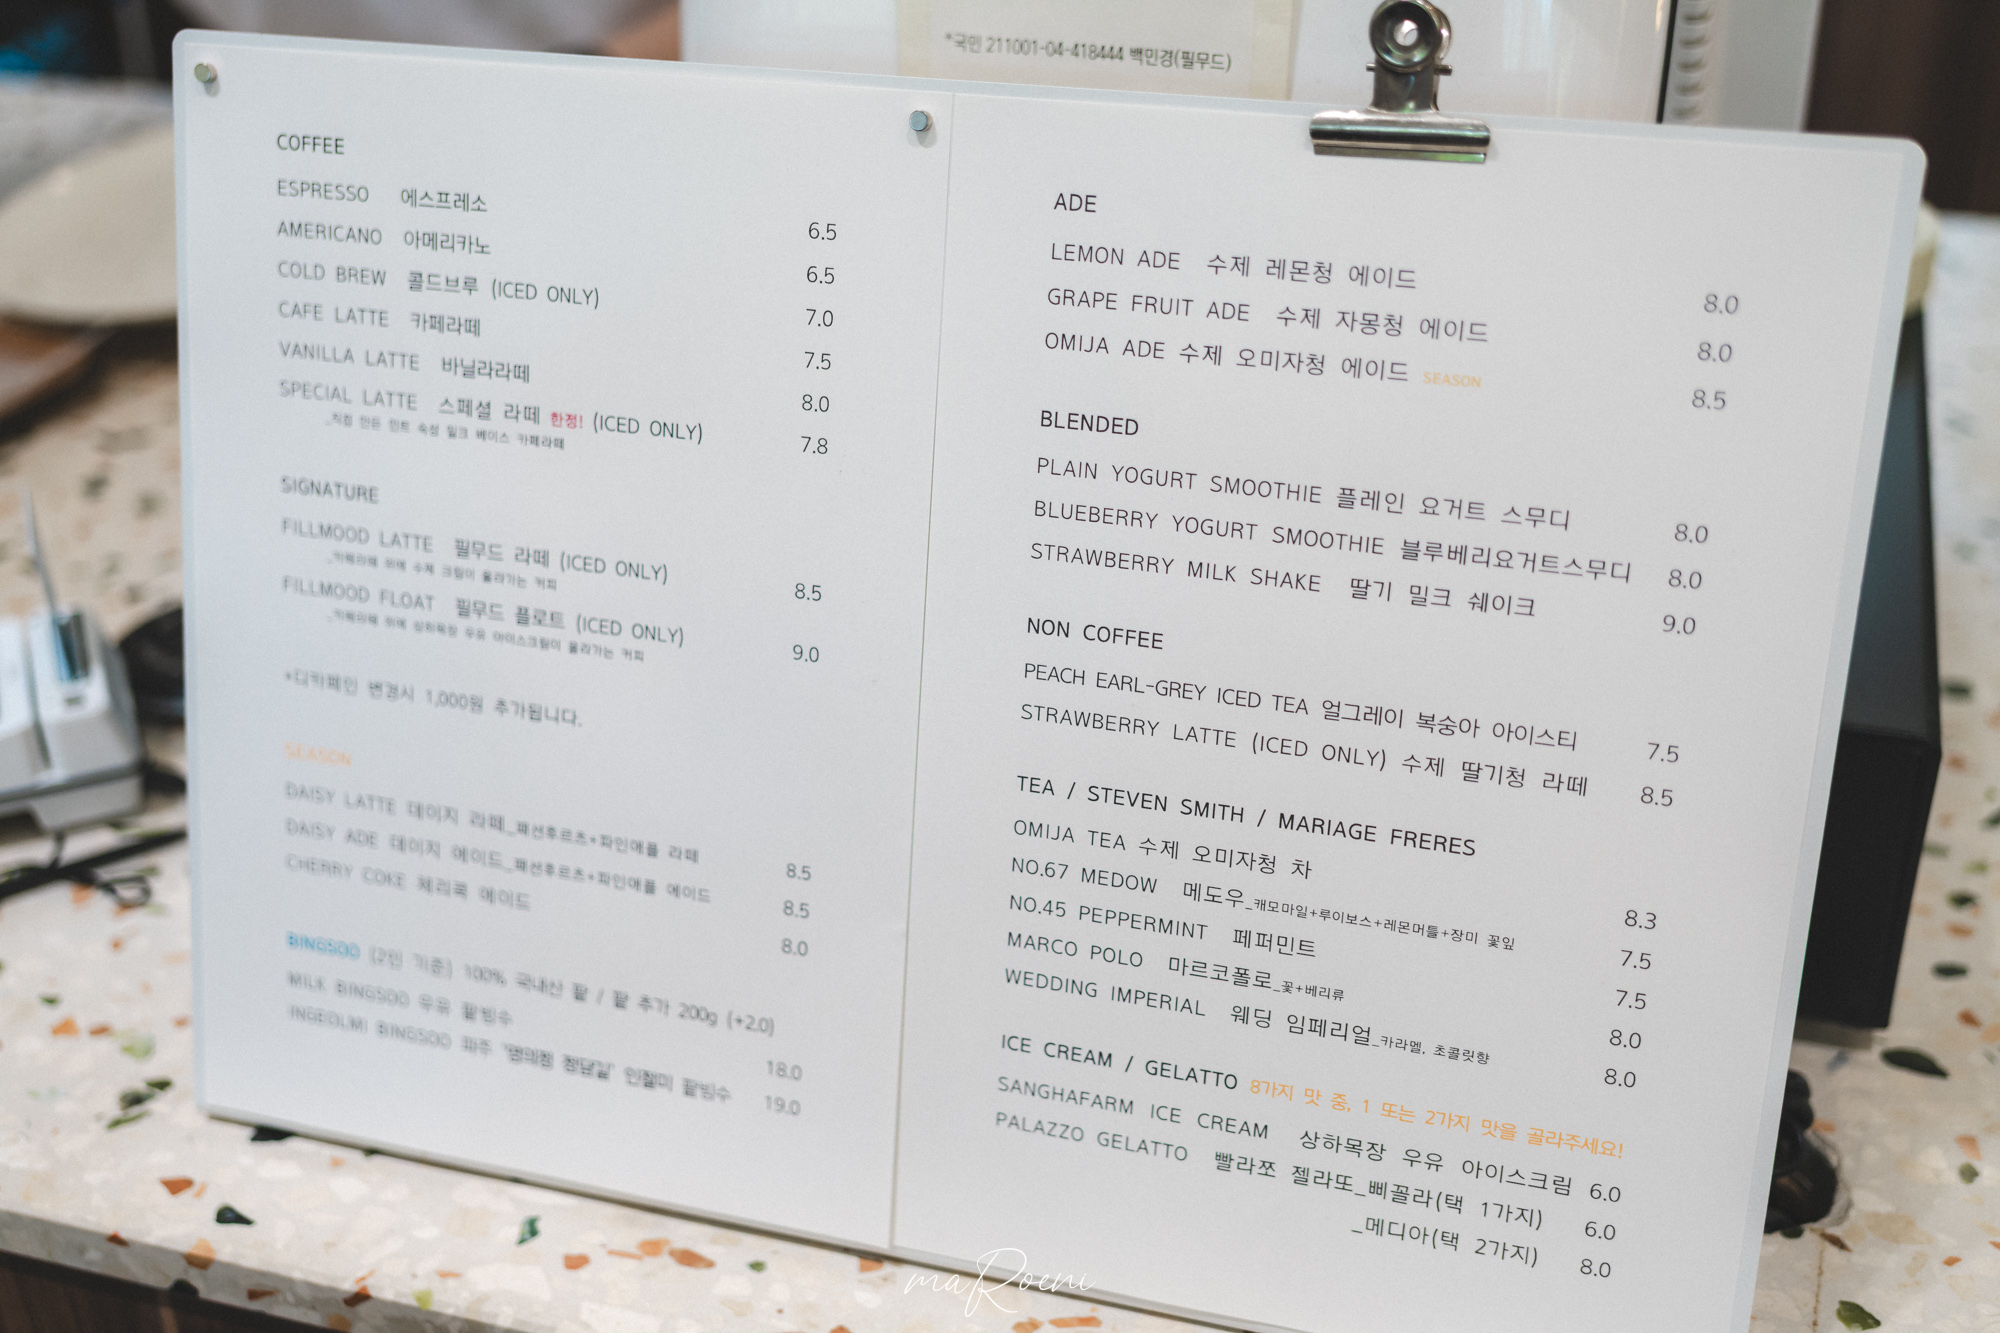 *국민 211001-04-418444 백민경(필무드)
COFFEE
ESPRESSO 에스프레소 6.5
AMERICANO 아메리카노 6.5
COLD BREW 콜드브루 (ICED ONLY) 7.0
CAFE LATTE 카페라떼 7.5
VANILLA LATTE 바닐라라떼 8.0
SPECIAL LATTE 스페셜 라떼 한정! (ICED ONLY) 7.8
_직접 만든 민트 숙성 밀크 베이스 카페라떼
SIGNATURE
FILLMOOD LATTE 필무드 라떼 (ICED ONLY) 8.5
_카페라떼 위에 수제 크림이 올라가는 커피
FILLMOOD FLOAT 필무드 플로트 (ICED ONLY) 9.0
_카페라떼 위에 상하목장 우유 아이스크림이 올라가는 커피
*디카페인 변경시 1,000원 추가됩니다.
SEASON
DAISY LATTE 데이지 라떼_패션후르츠+파인애플 라떼 8.5
DAISY ADE 데이지 에이드_패션후르츠+파인애플 에이드 8.5
CHERRY COKE 체리콕 에이드 8.0
BINGSOO (2인 기준) 100% 국내산 팥 / 팥 추가 200g (+2.0)
MILK BINGSOO 우유 팥빙수 18.0
INGEOLMI BINGSOO 파주 인절미 팥빙수 19.0
ADE
LEMON ADE 수제 레몬청 에이드 8.0
GRAPE FRUIT ADE 수제 자몽청 에이드 8.0
OMIJA ADE 수제 오미자청 에이드 SEASON 8.5
BLENDED
PLAIN YOGURT SMOOTHIE 플레인 요거트 스무디 8.0
BLUEBERRY YOGURT SMOOTHIE 블루베리요거트스무디 8.0
STRAWBERRY MILK SHAKE 딸기 밀크 쉐이크 9.0
NON COFFEE
PEACH EARL-GREY ICED TEA 얼그레이 복숭아 아이스티 7.5
STRAWBERRY LATTE (ICED ONLY) 수제 딸기청 라떼 8.5
TEA / STEVEN SMITH / MARIAGE FRERES
OMIJA TEA 수제 오미자청 차 8.3
NO.67 MEDOW 메도우_캐모마일+루이보스+레몬머틀+장미 꽃잎 7.5
NO.45 PEPPERMINT 페퍼민트 7.5
MARCO POLO 마르코폴로_꽃+베리류 8.0
WEDDING IMPERIAL 웨딩 임페리얼_카라멜, 초콜릿향 8.0
ICE CREAM / GELATTO 8가지 맛 중, 1 또는 2가지 맛을 골라주세요!
SANGHAFARM ICE CREAM 상하목장 우유 아이스크림 6.0
PALAZZO GELATTO 빨라쪼 젤라또_삐꼴라(택 1가지) 6.0
_메디아(택 2가지) 8.0
maRoeni